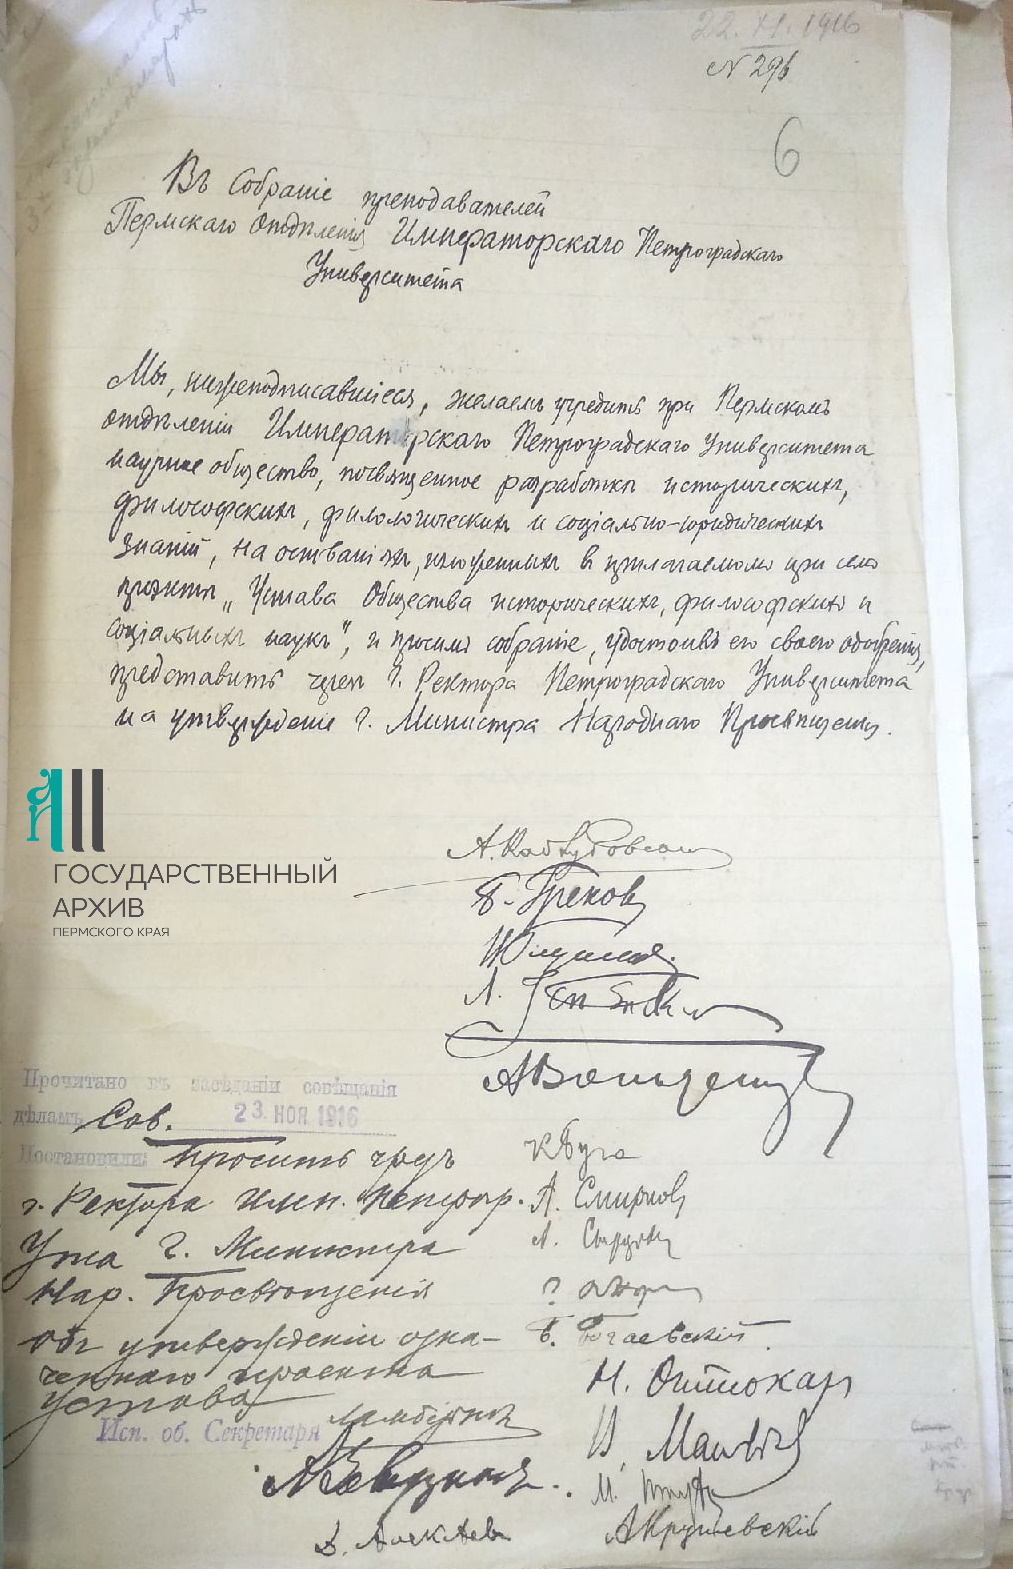 22.XI.1916
N 296
6
Въ Собраніе преподавателей
Пермскаго Отдѣленія Императорскаго Петроградскаго
Университета
Мы, нижеподписавшіеся, желаемъ учредить при Пермскомъ
отдѣленіи Императорскаго Петроградскаго Университета
научное общество, посвященное разработкѣ историческихъ,
философскихъ, филологическихъ и соціально-юридическихъ
знаній, на основаніяхъ, изложенныхъ в прилагаемомъ при семъ
проэктѣ „Устава Общества историческихъ, философскихъ и
соціальныхъ наукъ", и просимъ собраніе, удостоивъ его своего одобренія,
представить чрезъ Г. Ректора Петроградскаго Университета
на утвержденіе Г. Министра Народнаго Просвѣщенія.
ГОСУДАРСТВЕННЫЙ
АРХИВ
ПЕРМСКОГО КРАЯ
Б. Греков
А
Прочитано въ засѣданіи совѣщанія
дѣламъ Сов. 23 НОЯ 1916
Постановили: Просить чрезъ
г. Ректора Имп. Петрогр.
Ун-та Г. Министра
Нар. Просвѣщенія
объ утвержденіи озна-
ченнаго проекта
Устава
Исп. об. Секретаря
К Буга
А. Смирновъ
Б. Богаевскій
Н. Оттокар
А Крушевскій